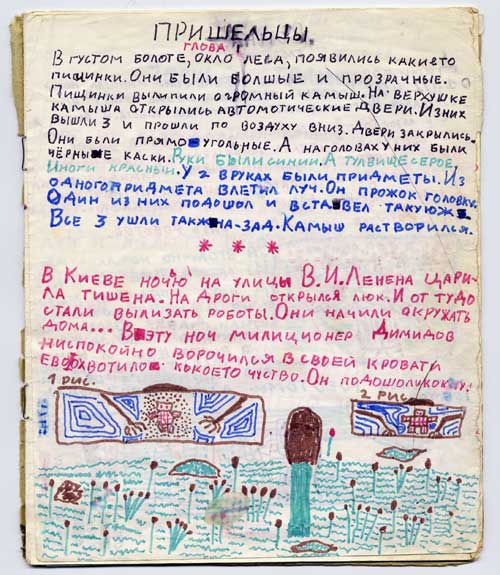 ПРИШЕЛЬЦЫ.
ГЛОВА 1
В ГУСТОМ БОЛОТЕ, ОКЛО ЛЕСА, ПОЯВИЛИСЬ КАКИЕТО
ПИЩИНКИ. ОНИ БЫЛИ БОЛШЫЕ И ПРОЗРАЧНЫЕ.
ПИЩИНКИ ВЫЛИПИЛИ ОГРОМНЫЙ КАМЫШ. НА ВЕРХУШКЕ
КАМЫША ОТКРЫЛИСЬ АВТОМОТИЧЕСКИЕ ДВЕРИ. ИЗ НИХ
ВЫШЛИ 3 И ПРОШЛИ ПО ВОЗДУХУ ВНИЗ. ДВЕРИ ЗАКРЫЛИСЬ.
ОНИ БЫЛИ ПРЯМОУГОЛЬНЫЕ. А НА ГОЛОВАХ У НИХ БЫЛИ
ЧЁРНЫЕ КАСКИ. РУКИ БЫЛИ СИНИИ. А ТУЛВИЩЕ СЕРОЕ,
ИНОГИ КРАСНЫИ. У 2 В РУКАХ БЫЛИ ПРИДМЕТЫ. ИЗ
ОДНОГО ПРИДМЕТА ВЛЕТИЛ ЛУЧ. ОН ПРОЖОК ГОЛОВКУ.
ОДИН ИЗ НИХ ПОДОШОЛ И ВСТАВЕЛ ТАКУЮЖ
ВСЕ 3 УШЛИ ТАКЖ НА-ЗАД. КАМЫШ РАСТВОРИЛСЯ.
* * *
В КИЕВЕ НОЧЬЮ НА УЛИЦЫ В.И. ЛЕНЕНА ЦАРИ-
ЛА ТИШЕНА. НА ДРОГИ ОТКРЫЛСЯ ЛЮК. И ОТ ТУДО
СТАЛИ ВЫЛИЗАТЬ РОБОТЫ. ОНИ НАЧИЛИ ОКРУЖАТЬ
ДОМА... В ЭТУ НОЧ МИЛИЦИОНЕР ДИМИДОВ
НИСПОКОЙНО ВОРОЧИЛСЯ В СВОЕЙ КРОВАТИ
ЕВО ХВОТИЛО КОКОЕТО ЧУСТВО. ОН ПОДОШОЛ К ОКНУ.
1 РИС.
2 РИС.